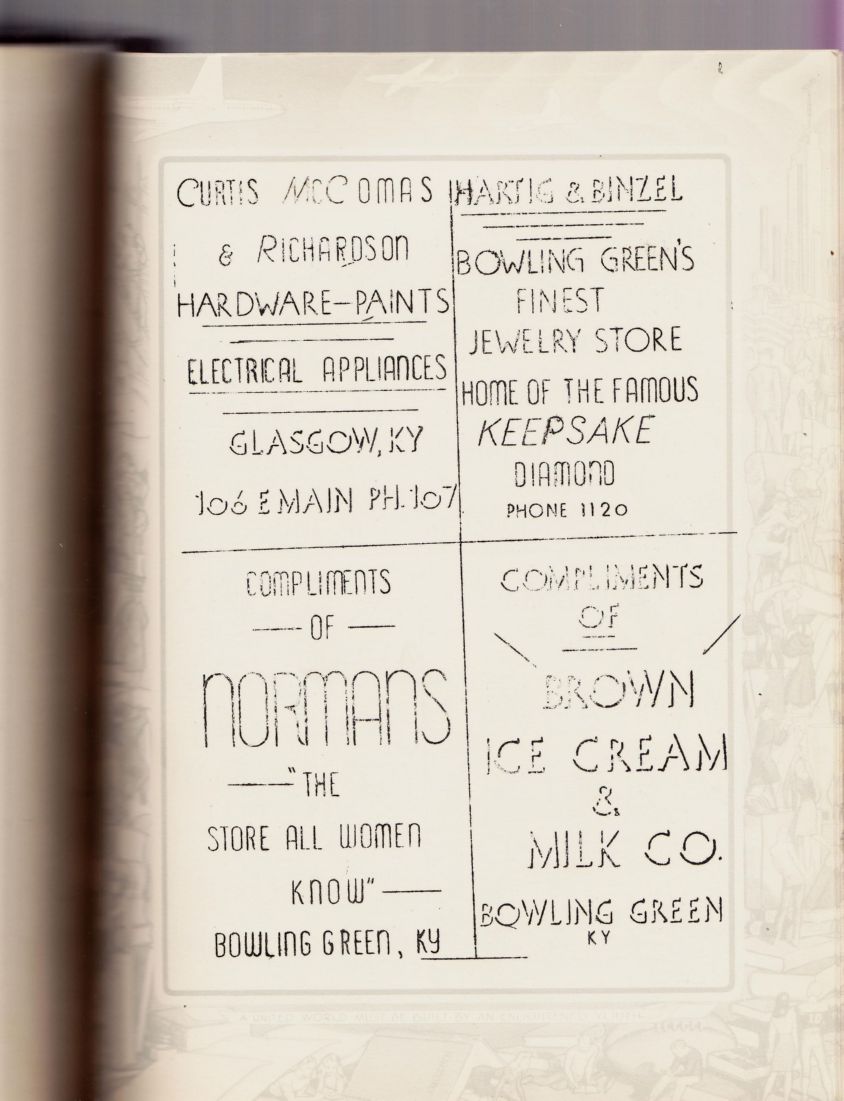 CURTIS MCCOMAS
& RICHARDSON
HARDWARE-PAINTS
ELECTRICAL APPLIANCES
GLASGOW, KY
106 E MAIN PH. 107
HARTIG & BINZEL
BOWLING GREEN'S
FINEST
JEWELRY STORE
HOME OF THE FAMOUS
KEEPSAKE
DIAMOND
PHONE 1120
COMPLIMENTS
OF
NORMANS
"THE
STORE ALL WOMEN
KNOW"
BOWLING GREEN, KY
COMPLIMENTS
OF
BROWN
ICE CREAM
&
MILK CO.
BOWLING GREEN
KY
A UNITED WORLD MUST BE BUILT BY AN ENLIGHTENED